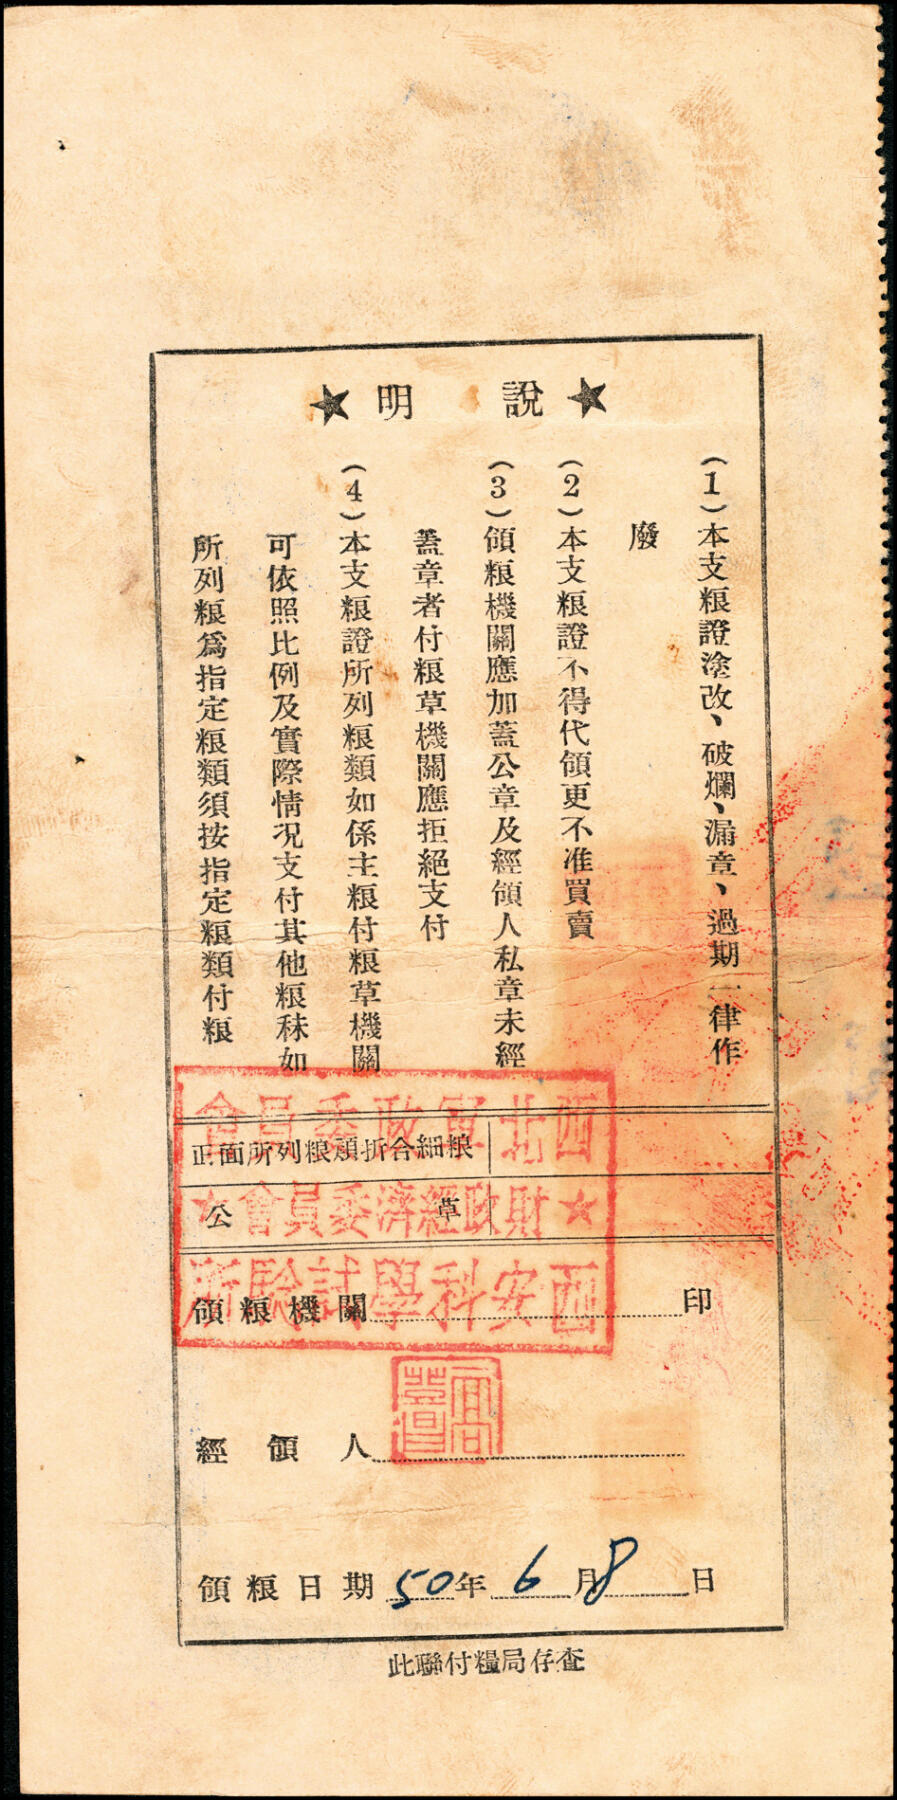 ★說明★
(1)本支粮證塗改、破爛、漏章、過期一律作
廢
(2)本支粮證不得代領更不准買賣
(3)領粮機關應加蓋公章及經領人私章未經
蓋章者付粮草機關應拒絕支付
(4)本支粮證所列粮類如係主粮付粮草機關
可依照比例及實際情况支付其他粮秣如
所列粮爲指定粮類須按指定粮類付粮
正面所列粮頪折合細粮
公草
領粮機關 印
西北軍政委員會
★財政經濟委員會★
西安科學試驗所
經領人
領粮日期 50年 6月8日
此聯付糧局存查